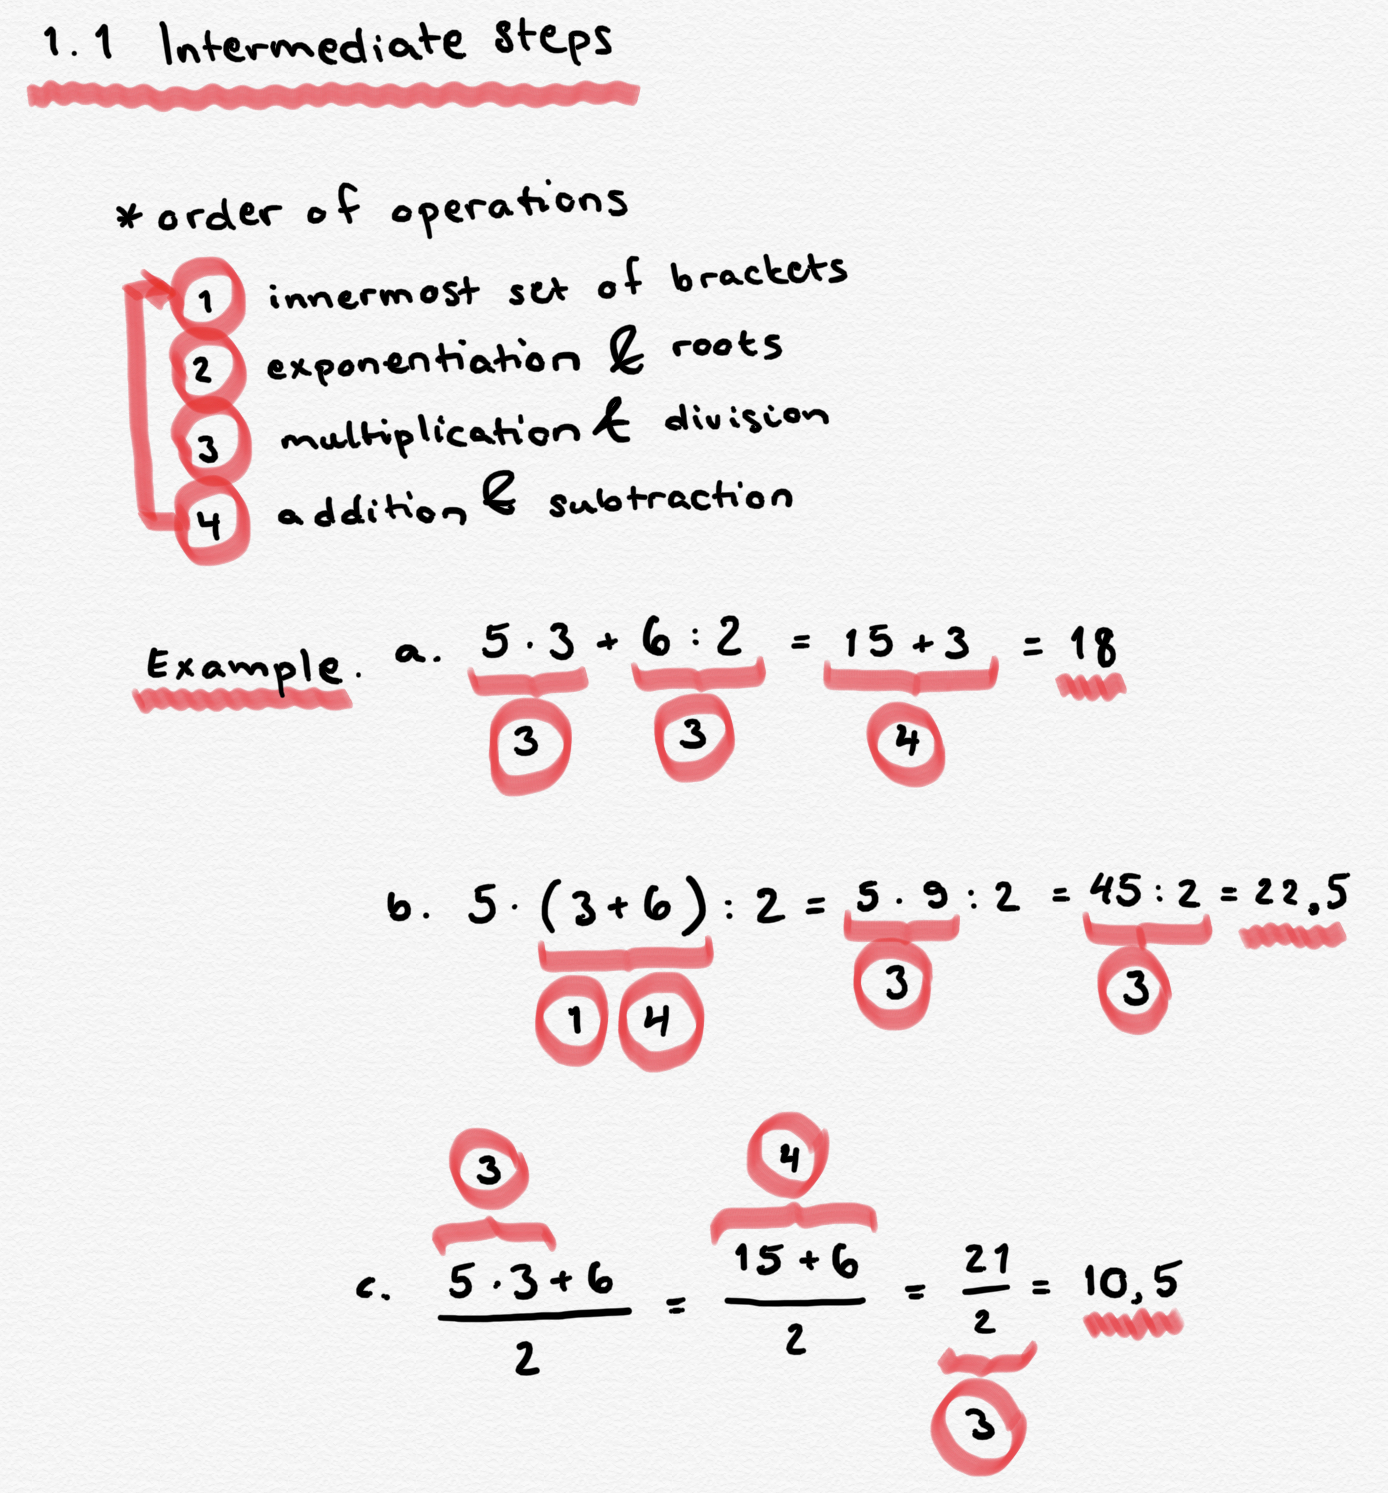 1.1 Intermediate steps
* order of operations
1 innermost set of brackets
2 exponentiation & roots
3 multiplication & division
4 addition & subtraction
Example. a. 5 · 3 + 6 : 2 = 15 + 3 = 18
3 3 4
b. 5 · (3 + 6) : 2 = 5 · 9 : 2 = 45 : 2 = 22,5
1 4 3 3
3 4
c. 5 · 3 + 6 / 2 = 15 + 6 / 2 = 21 / 2 = 10,5
3